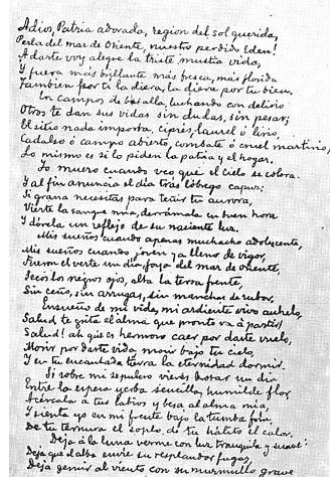 Adios, Patria adorada, region del sol querida,
Perla del mar de Oriente, nuestro perdido Eden!
A darte voy alegre la triste mustia vida,
Y fuera más brillante más fresca, más florida
Tambien por ti la diera, la diera por tu bien.
En campos de batalla, luchando con delirio
Otros te dan sus vidas sin dudas, sin pesar;
El sitio nada importa, ciprés, laurel ó lirio,
Cadalso ó campo abierto, combate ó cruel martirio,
Lo mismo es si lo piden la patria y el hogar.
Yo muero cuando veo que el cielo se colora
Y al fin anuncia el día tras lóbrego capuz;
Si grana necesitas para teñir tu aurora,
Vierte la sangre mía, derrámala en buen hora
Y dórela un reflejo de su naciente luz.
Mis sueños cuando apenas muchacho adolescente,
Mis sueños cuando joven ya lleno de vigor,
Fueron el verte un día, joya del mar de oriente,
Secos los negros ojos, alta la tersa frente,
Sin ceño, sin arrugas, sin manchas de rubor.
Ensueño de mi vida, mi ardiente vivo anhelo,
Salud te grita el alma que pronto va á partir!
Salud! ah que es hermoso caer por darte vuelo,
Morir por darte vida, morir bajo tu cielo,
Y en tu encantada tierra la eternidad dormir.
Si sobre mi sepulcro vieres brotar un dia
Entre la espesa yerba sencilla, humilde flor,
Acércala a tus labios y besa al alma mía,
Y sienta yo en mi frente bajo la tumba fria
De tu ternura el soplo, de tu hálito el calor.
Deja á la luna verme con luz tranquila y suave:
Deja que el alba envíe su resplandor fugaz,
Deja gemir al viento con su murmullo grave